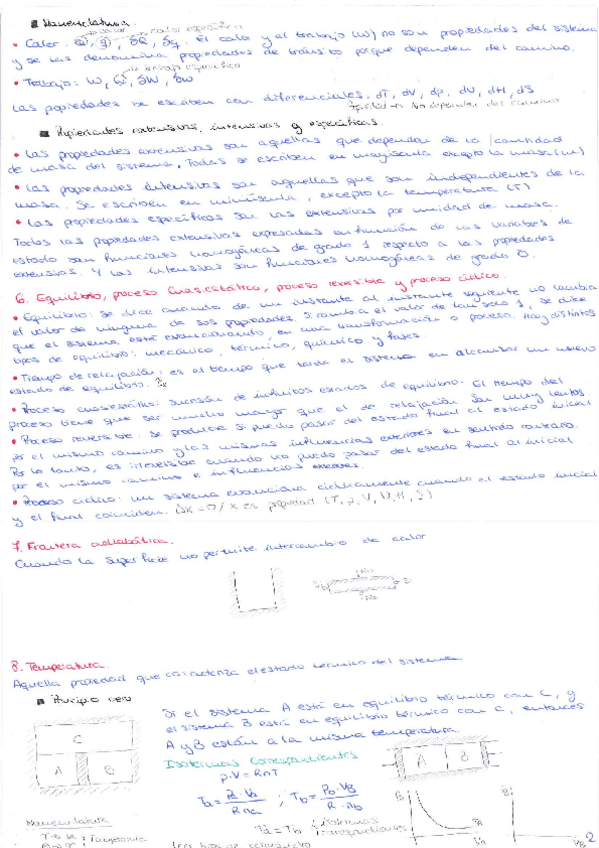 ■ Nomenclatura.
calor calor específico
• Calor: Q, q, δQ, δq. El calor y el trabajo (W) no son propiedades del sistema
y se las denomina propiedades de tránsito porque dependen del camino.
trabajo específico
• Trabajo: W, ω, δW, δω
Las propiedades se escriben con diferenciales: dT, dV, dp, dU, dH, dS
no dependen del camino
■ Propiedades extensivas, intensivas y específicas.
• Las propiedades extensivas son aquellas que dependen de la cantidad
de masa del sistema. Todas se escriben en mayúscula excepto la masa (m)
• Las propiedades intensivas son aquellas que son independientes de la
masa. Se escriben en minúscula, excepto la temperatura (T)
• Las propiedades específicas son las extensivas por unidad de masa.
Todas las propiedades extensivas expresadas en función de las variables de
estado son funciones homogéneas de grado 1 respecto a las propiedades
extensivas. Y las intensivas son funciones homogéneas de grado 0.
6. Equilibrio, proceso cuasiestático, proceso reversible y proceso cíclico.
• Equilibrio: se dice cuando de un instante al instante siguiente no cambia
el valor de ninguna de sus propiedades. Si cambia el valor de tan solo 1, se dice
que el sistema está evolucionando en una transformación o proceso. Hay distintos
tipos de equilibrio: mecánico, térmico, químico y fases.
• Tiempo de relajación: es el tiempo que tarda el sistema en alcanzar un nuevo
estado de equilibrio.
• Proceso cuasiestático: sucesión de infinitos estados de equilibrio. El tiempo del
proceso tiene que ser mucho mayor que el de relajación. Son muy lentos.
• Proceso reversible: se produce si puedo pasar del estado final al estado inicial
por el mismo camino y las mismas influencias exteriores en sentido contrario.
Por lo tanto, es irreversible cuando no puedo pasar del estado final al inicial
por el mismo camino e influencias exteriores.
• Proceso cíclico: un sistema evoluciona cíclicamente cuando el estado inicial
y el final coinciden. Δx = 0 / x es propiedad (T, p, V, U, H, S)
7. Frontera adiabática.
Cuando la superficie no permite intercambio de calor
8. Temperatura.
Aquella propiedad que caracteriza el estado térmico del sistema.
■ Principio cero
Si el sistema A está en equilibrio térmico con C, y
el sistema B está en equilibrio térmico con C, entonces
A y B están a la misma temperatura.
C
A B
Isotermas correspondientes
p·V = RnT
Ta = Pa·Va / R na ; Tb = Pb·Vb / R·nb
A B
Nomenclatura
Ta = Tb
isotermas
correspondientes
Temperatura
2